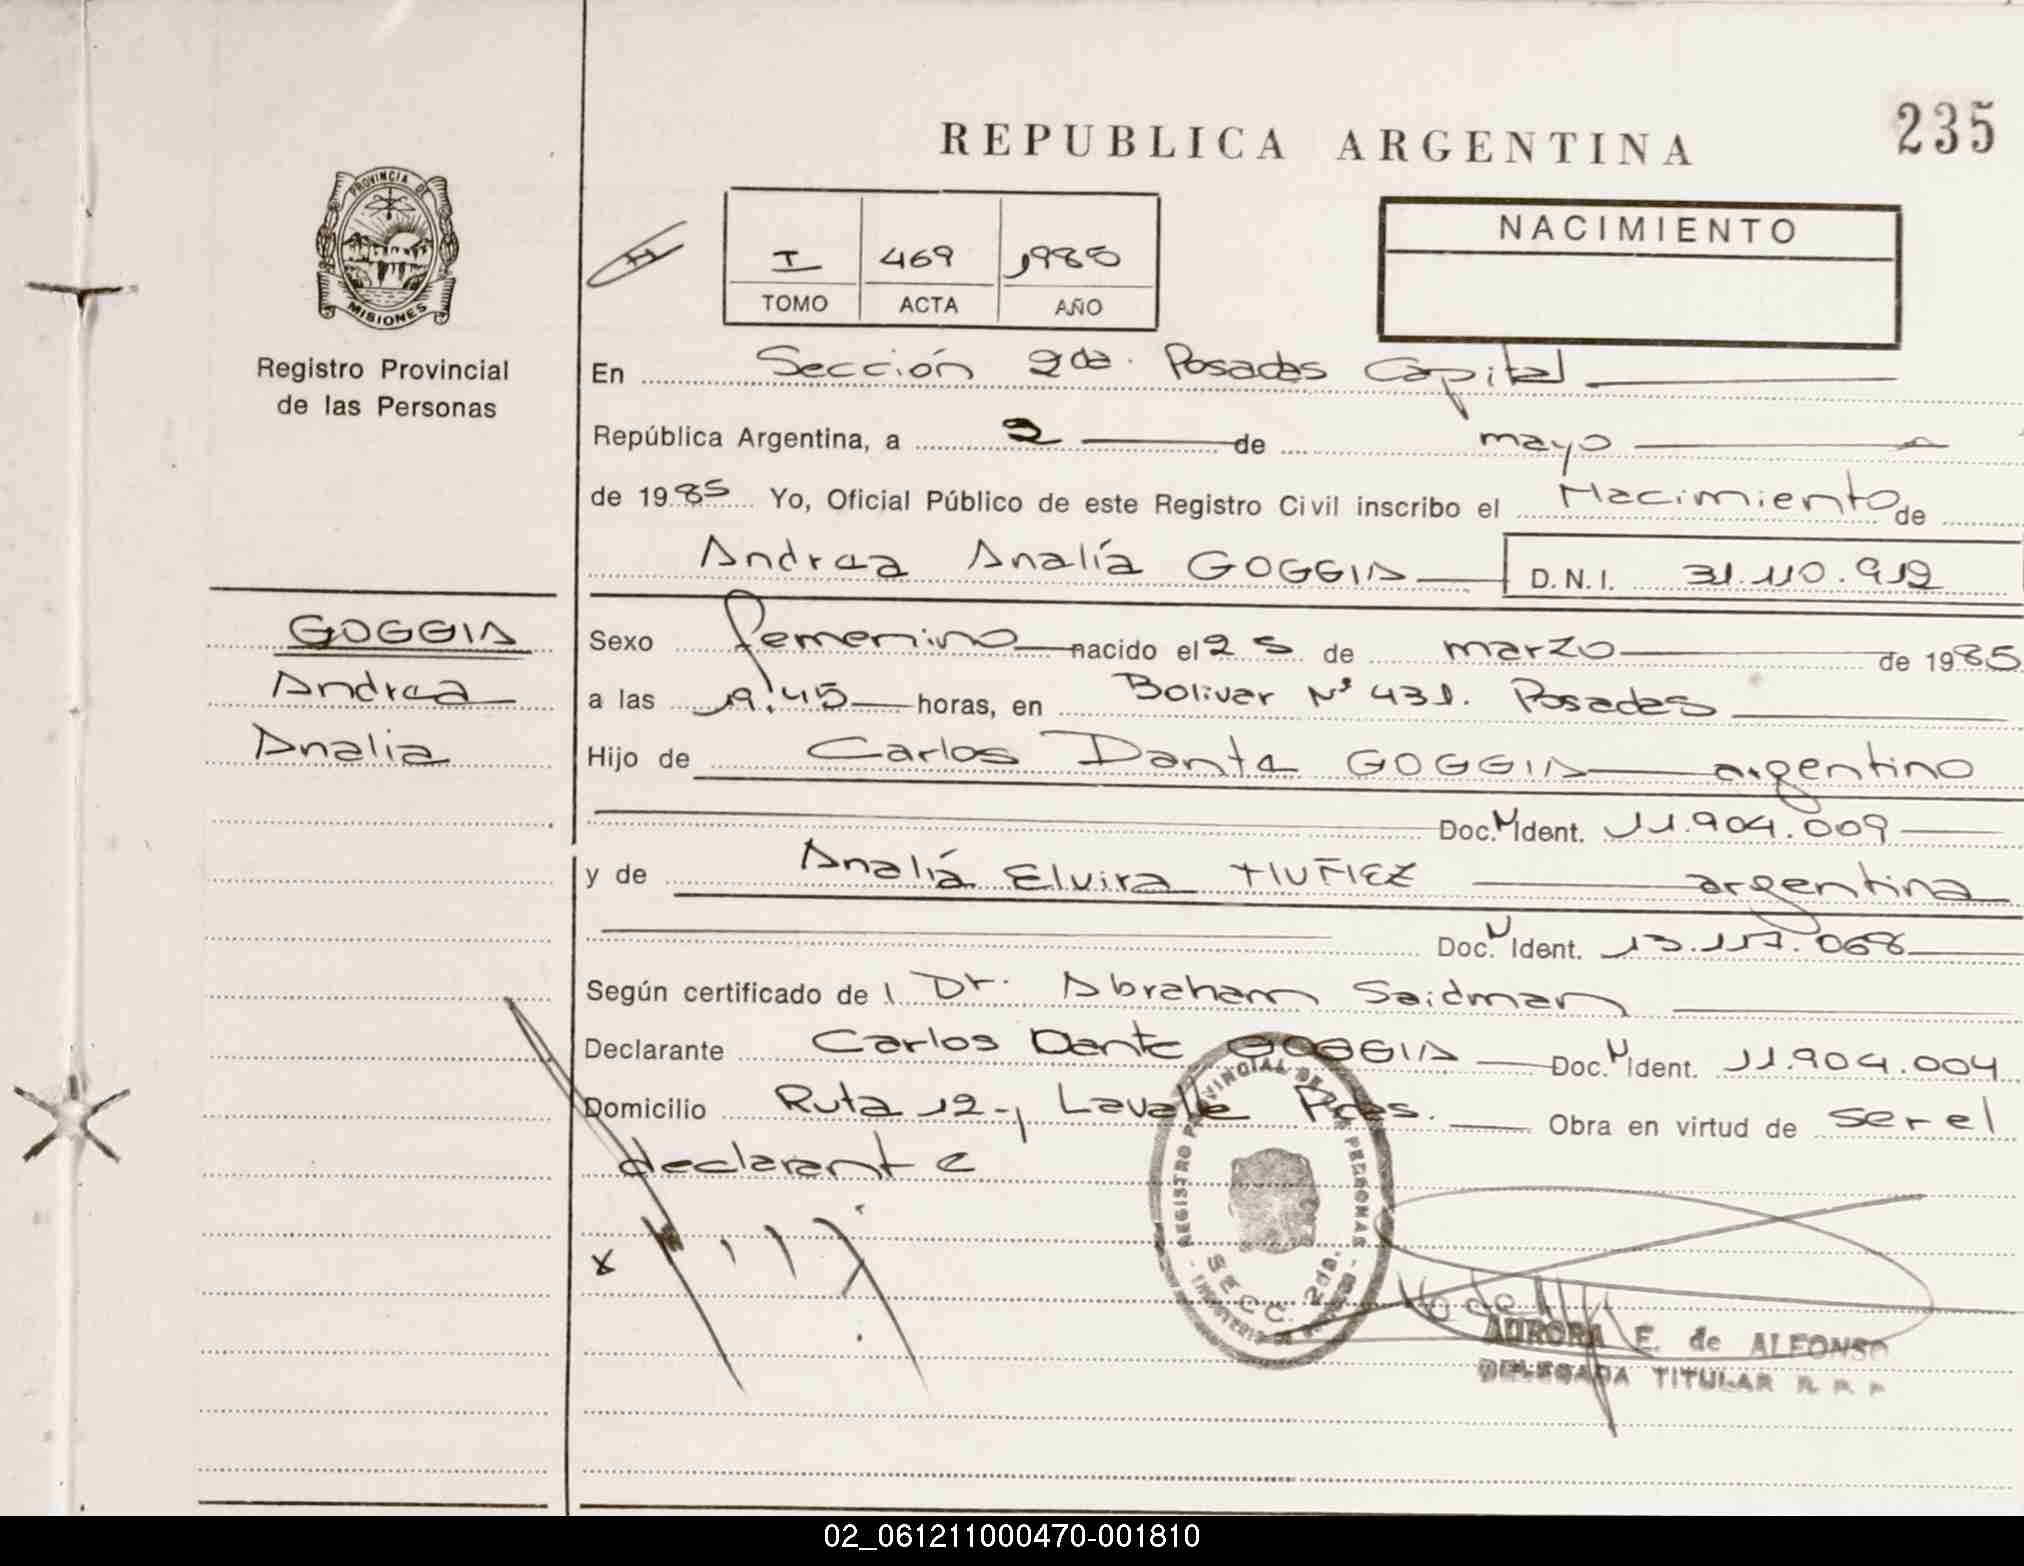 235
REPUBLICA ARGENTINA
PROVINCIA DE
MISIONES
Registro Provincial
de las Personas
I 469 1985
TOMO ACTA AÑO
NACIMIENTO
En Sección 2da. Posadas Capital
República Argentina, a 2 de mayo
de 1985 Yo, Oficial Público de este Registro Civil inscribo el Nacimiento de
Andrea Analía GOGGIA D.N.I. 31.110.912
GOGGIA
Andrea
Analia
Sexo femenino nacido el 25 de marzo de 1985
a las 19:45 horas, en Bolivar Nº 431. Posadas
Hijo de Carlos Dante GOGGIA argentino
Doc. N Ident. 11.904.009
y de Analía Elvira NUÑEZ argentina
Doc. N Ident. 13.117.068
Según certificado de l Dr. Abraham Saidman
Declarante Carlos Dante GOGGIA Doc. N Ident. 11.904.004
Domicilio Ruta 12 y Lavalle Pdas. Obra en virtud de ser el
declarante
REGISTRO PROVINCIAL DE LAS PERSONAS
SECC. 2da.
AURORA E. de ALFONSO
DELEGADA TITULAR R. P. P.
02_061211000470-001810